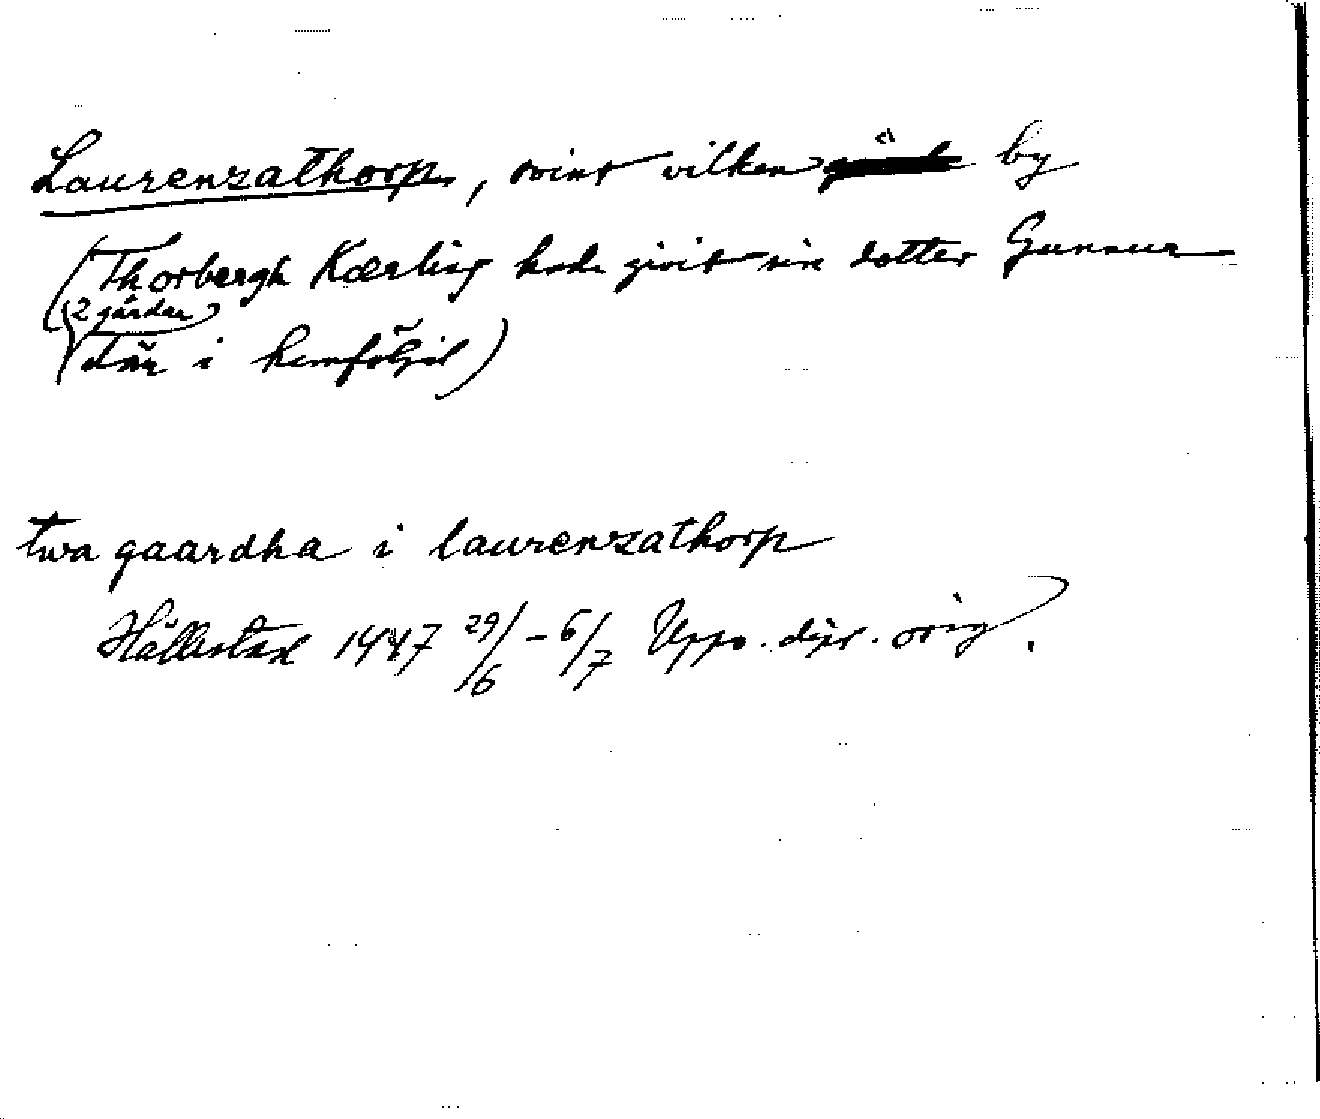 Laurenzathorp, ovint vilken by
(Thorbergh Kærling hade givit sin dotter Gunnur
2 gårdar
där i hemföljd)
twa gaardha i laurenzathorp
Hällestad 1447 29/6 - 6/7 Upps. dipl. orig.